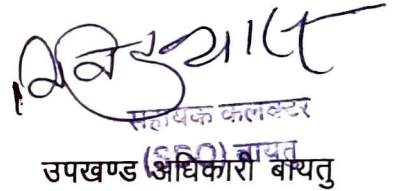 सहायक कलक्टर
(SDO) बायतु
उपखण्ड अधिकारी बायतु